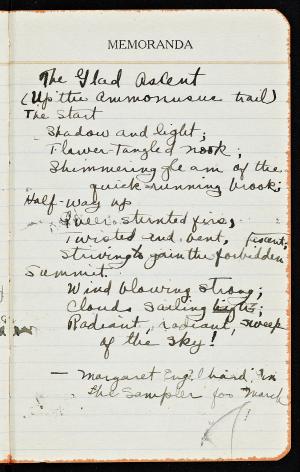 MEMORANDA
The Glad Ascent
(Up the Ammonusuc trail)
The Start
Shadow and light;
Flower-tangled nook;
Shimmering gleam of the
quick-running brook;
Half-way up
Queer stunted firs,
Twisted and bent,
Striving to gain the forbidden ascent;
Summit.
Wind blowing strong;
Clouds sailing high;
Radiant, radiant, sweep
of the sky!
— Margaret in
the Sampler for March